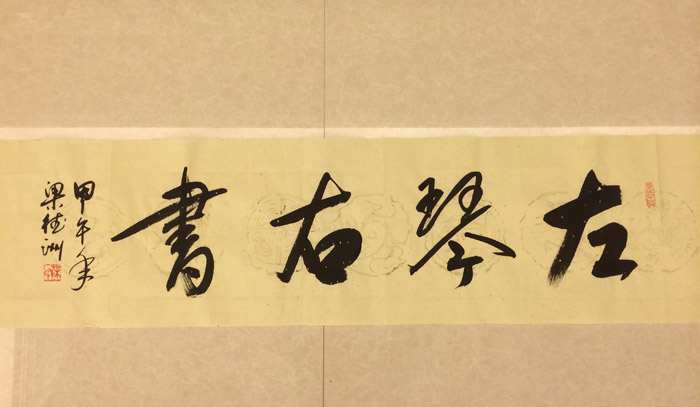 左琴右書
甲午年
梁桂洲